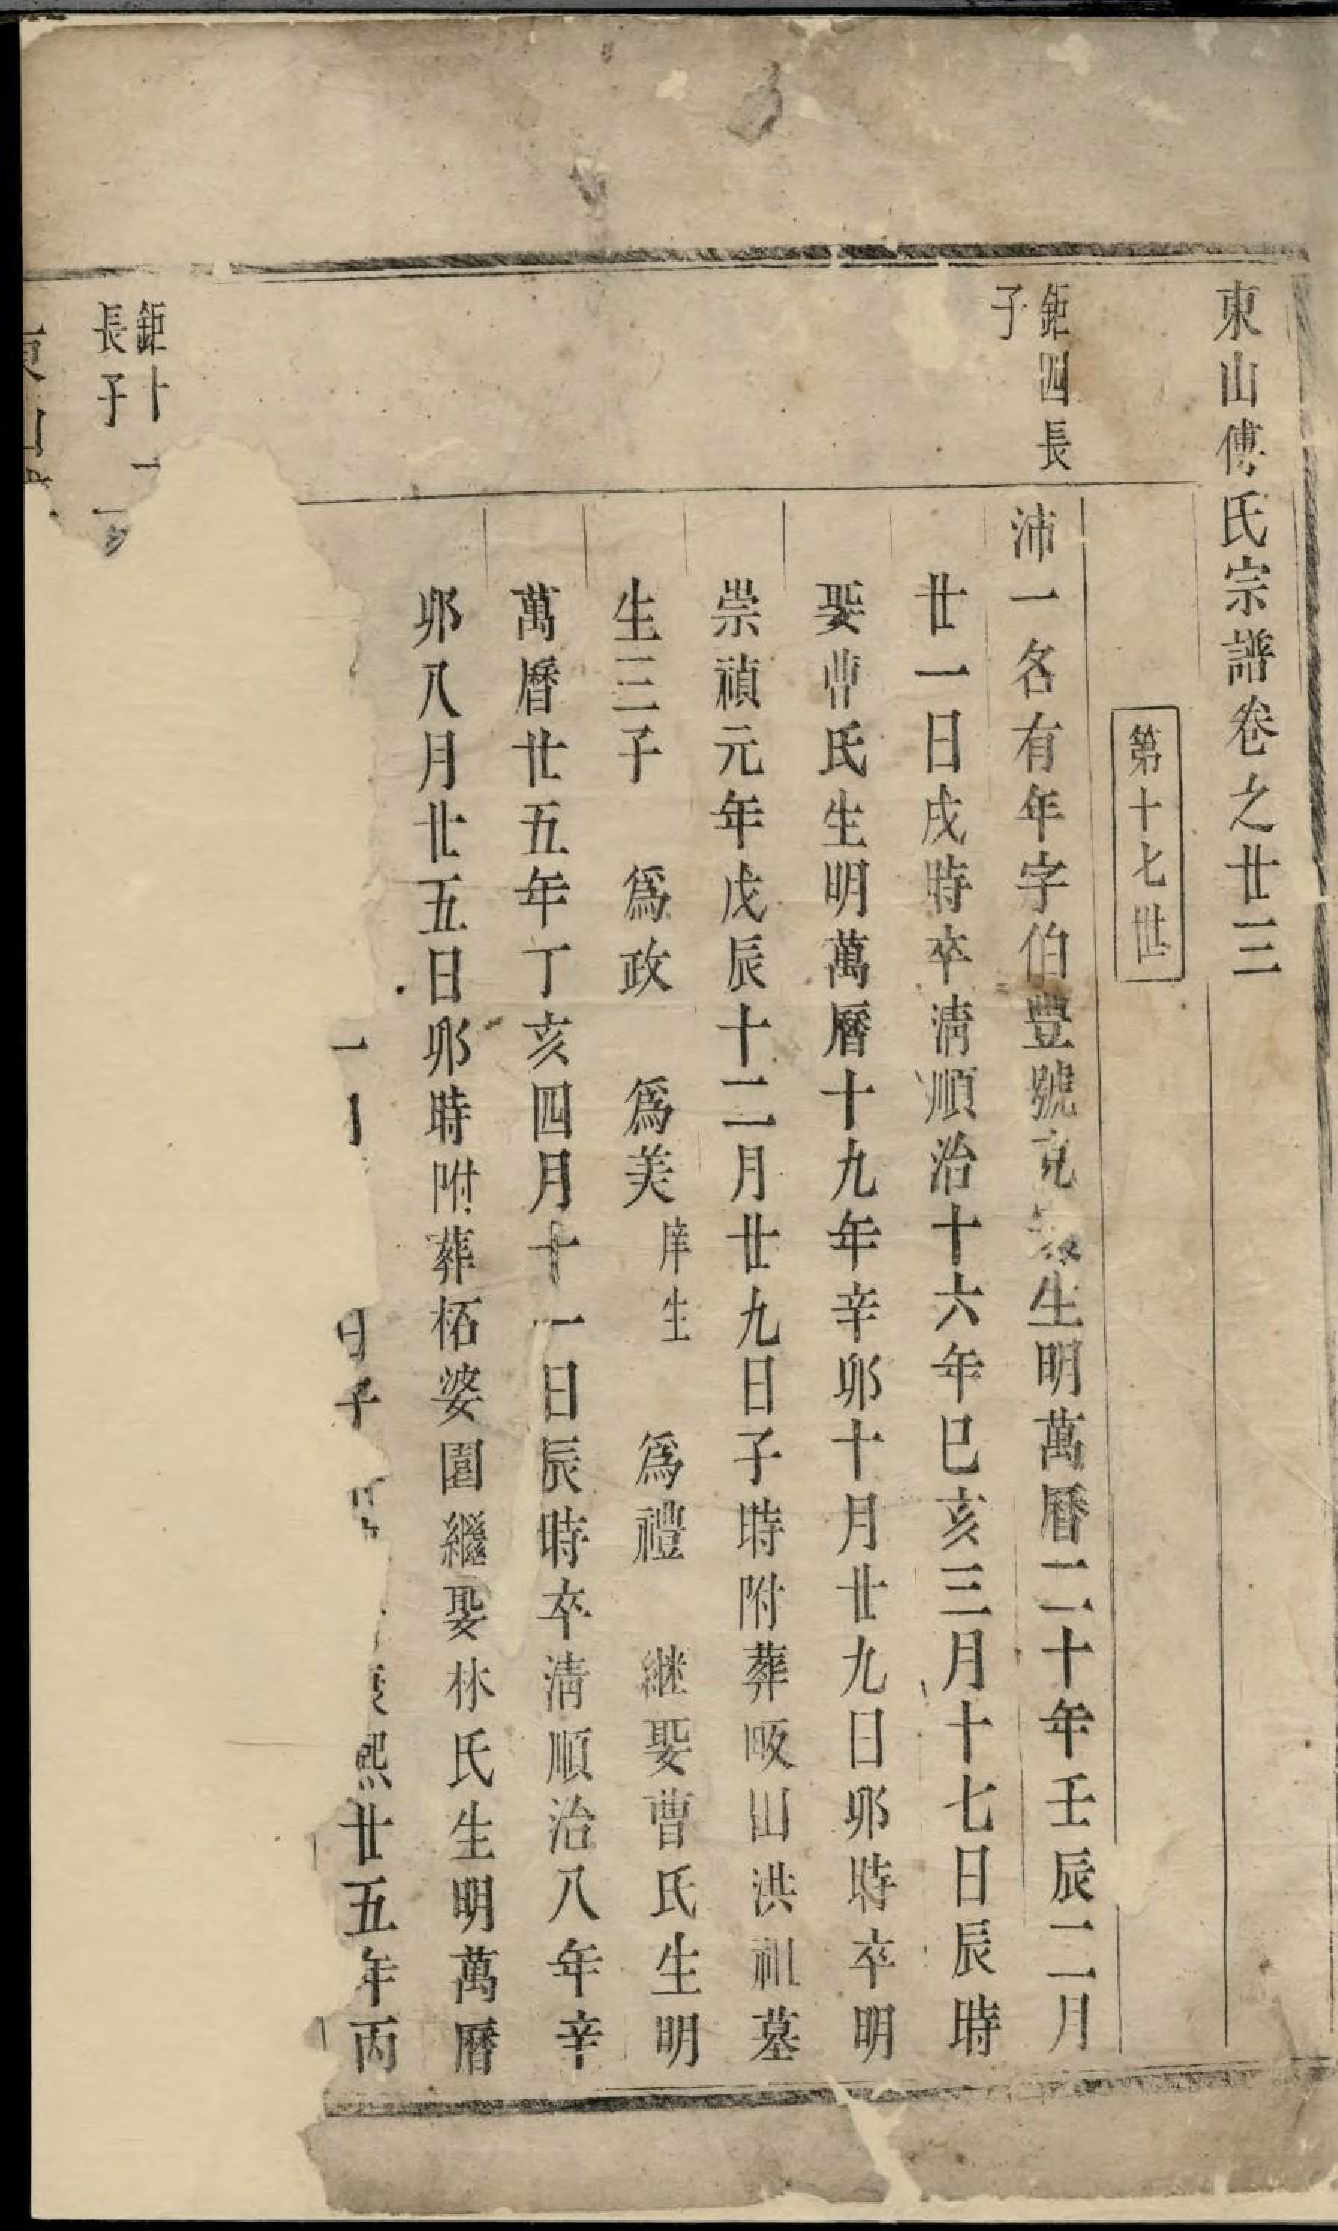 東山傅氏宗譜卷之廿三
第十七世
鉅四長
子
沛一名有年字伯豐號 生明萬曆二十年壬辰二月
廿一日戌時卒淸順治十六年巳亥三月十七日辰時
娶曹氏生明萬曆十九年辛卯十月廿九日卯時卒明
崇禎元年戊辰十二月廿九日子時附葬畈山洪祖墓
生三子 爲政 爲美庠生 爲禮 継娶曹氏生明
萬曆廿五年丁亥四月十一日辰時卒淸順治八年辛
卯八月廿五日卯時附葬柘婆園繼娶林氏生明萬曆
日子 熙廿五年丙
鉅十一
長子